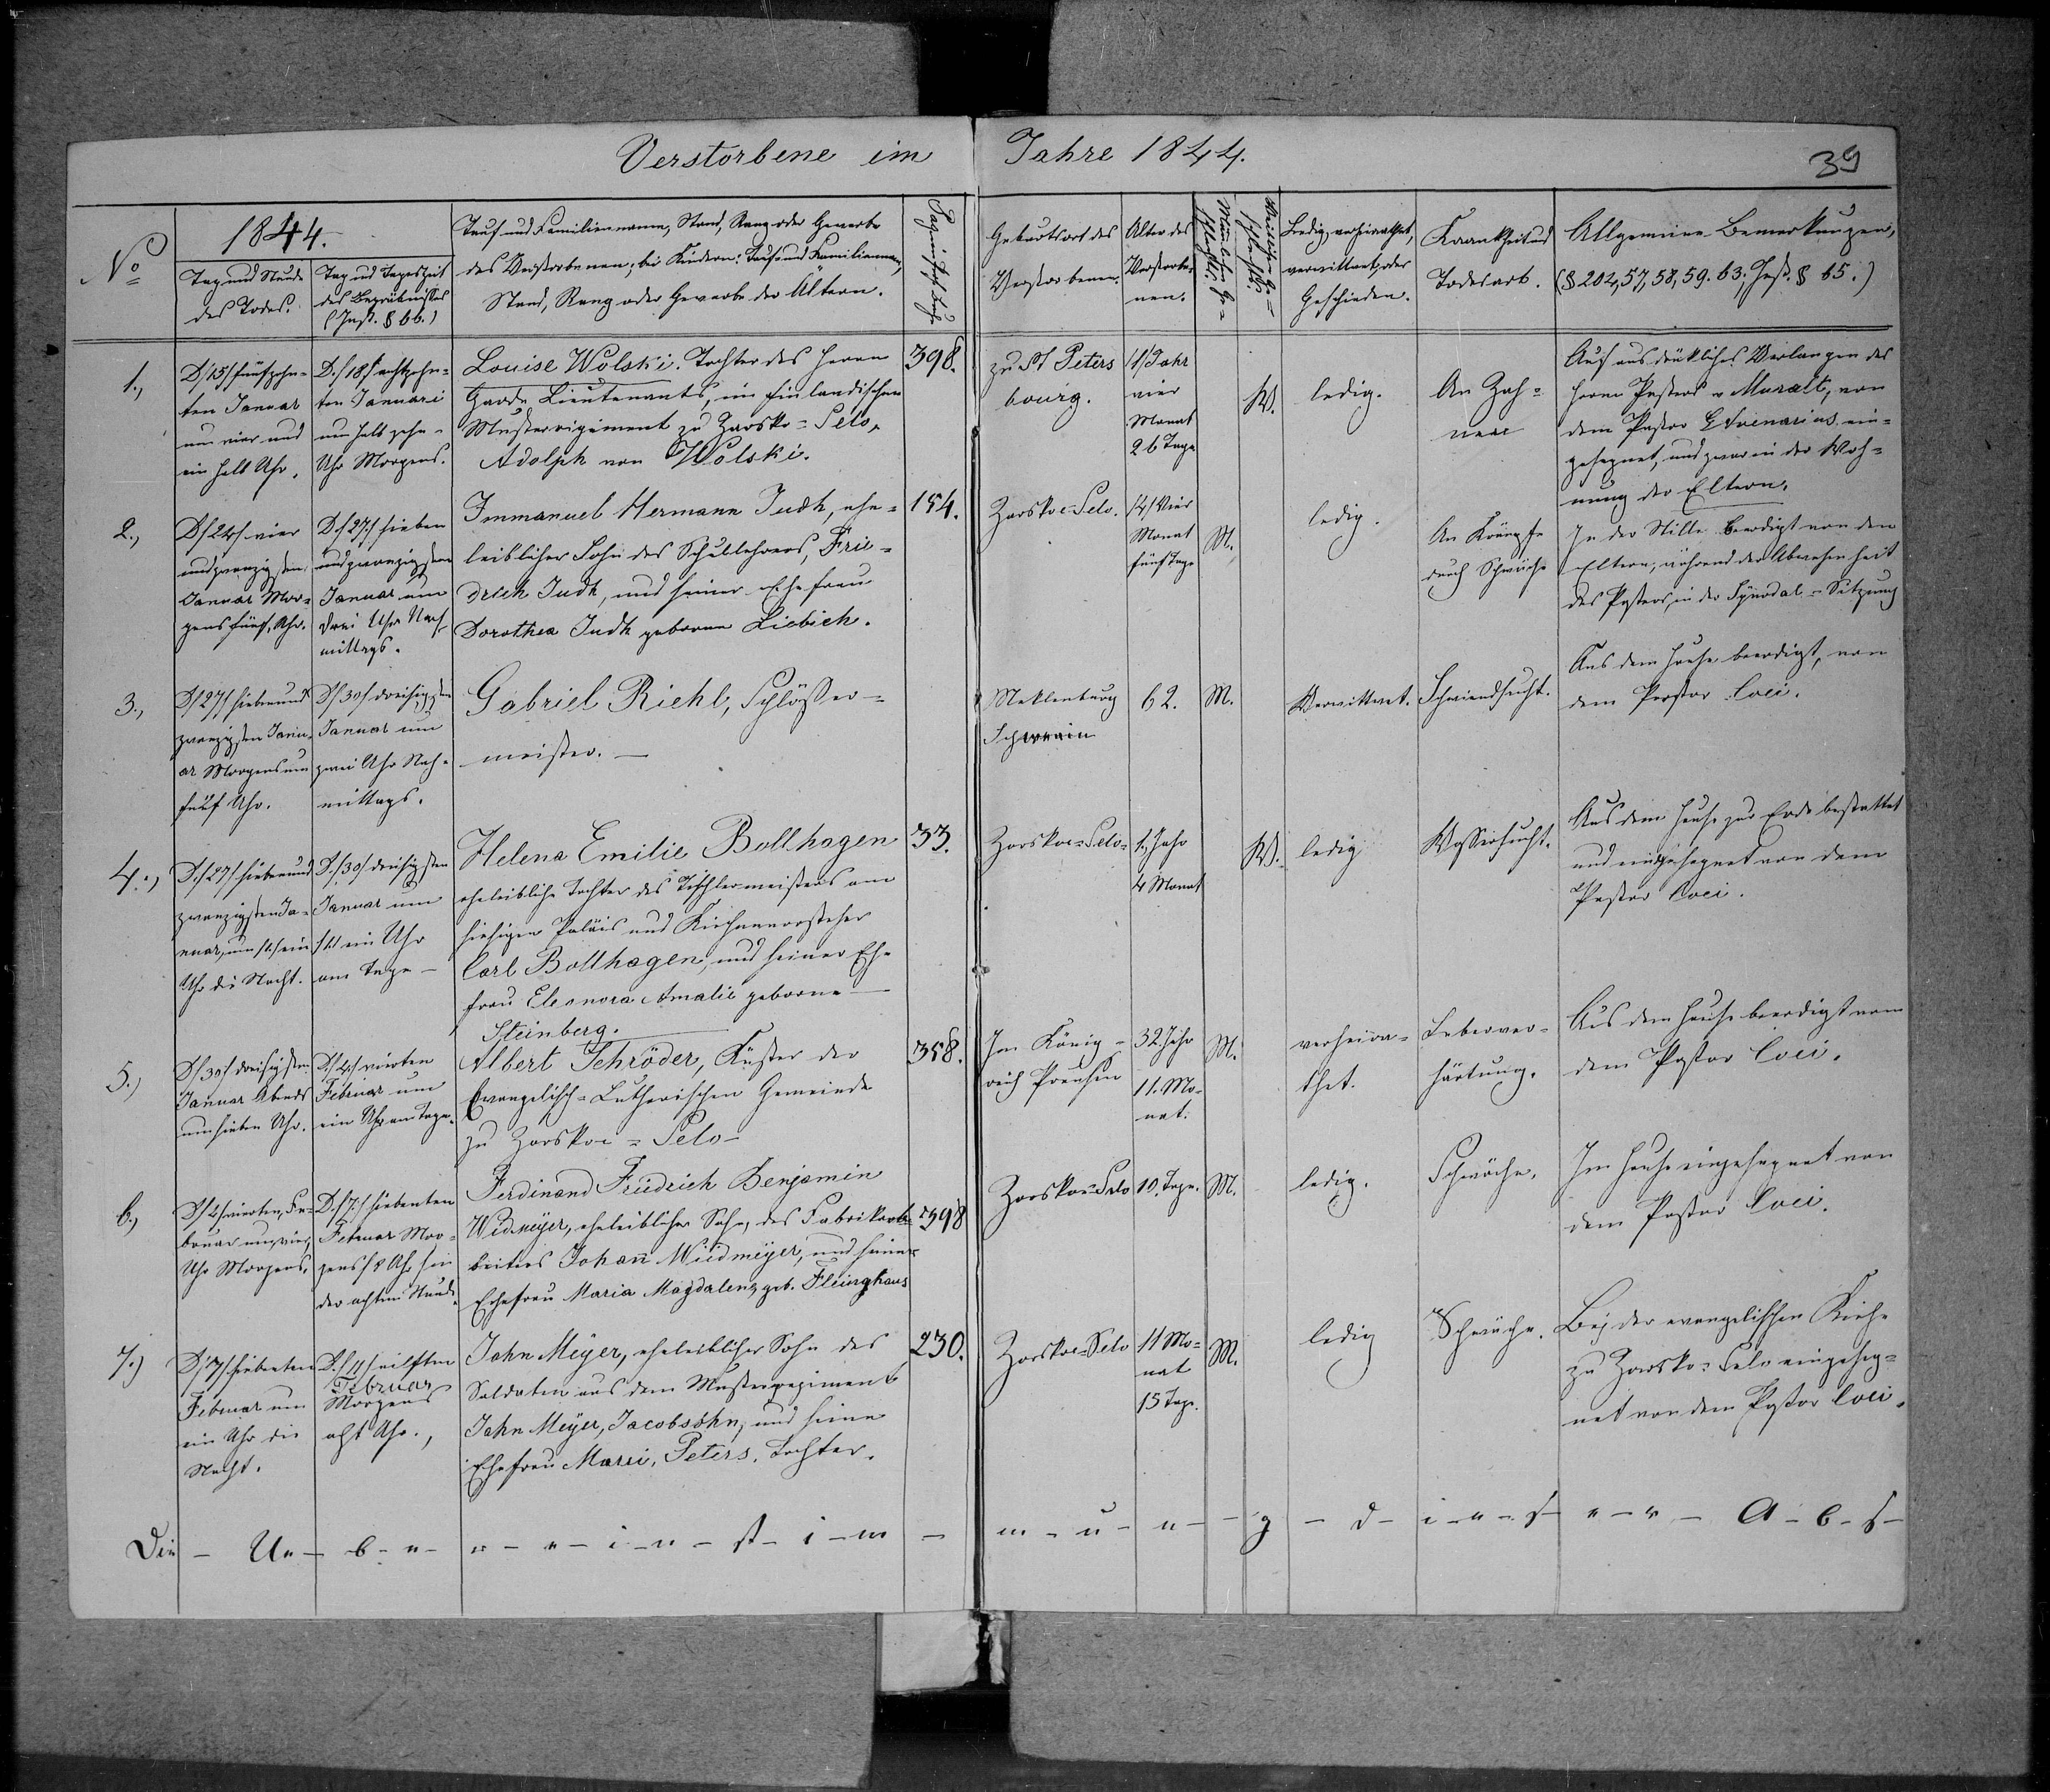 Verstorbene im Jahre 1844.
39
No
1844.
Tag und Stunde
des Todes.
Tag und Tageszeit
des Begräbnisses
(Inst. § 66.)
Tauf und Familienname, Stand, Rang oder Gewerbe
des Verstorbenen; bei Kindern: Tauf und Familienname,
Stand, Rang oder Gewerbe der Ältern.
Geburtsort des
Verstorbenen.
Alter des
Verstorbe-
nen.
Männlichen Ge-
schlechts.
Weiblichen Ge-
schlechts.
Ledig, verheirathet,
verwittwet, oder
Geschieden.
Krankheit und
Todesart.
Allgemeine Bemerkungen,
(§ 202, 57, 58, 59. 63; Inst. § 65.)
1.,
D/15/ fünfzehn-
ten Januar
um vier und
ein halb Uhr.
D./18/ achtzehn-
ten Januari
um halb zehn
Uhr Morgens.
Louise Wolski. Tochter des Herrn
Garde Lieutenants, im finlandischen
Musterregiment zu Zarsko-Selo,
Adolph von Wolski.
398.
zu St Peters
bourg.
/1/ Jahr
vier
Monat
26 Tage
W.
ledig.
An Zah-
nen
Auf ausdrükliches Verlangen des
Herrn Pastors v Muralt, von
dem Pastor Avenarius ein-
gesegnet, und zwar in der Woh-
nung der Eltern.
2.,
D/24/ vier
und zwanzigsten
Januar Mor-
gens fünf Uhr.
D./27/ sieben
und zwanzigsten
Januar um
drei Uhr Nach-
mittags.
Immanuel Hermann Judh, ehe-
leiblicher Sohn des Schullehrers, Frie-
drich Judh, und seiner Ehefrau
Dorothea Judh geborne Liebich.
154.
Zarskoe-Selo.
/4/ Vier
Monat
fünf Tage
M.
ledig.
An Krämpfe
durch Schwäche
In der Stille beerdigt von den
Eltern, während der Abwesenheit
des Pastors, in der Synodal-Sitzung
3.,
D/27/ sieben und
zwanzigsten Janu-
ar Morgens um
fünf Uhr.
D/30/ dreisigsten
Januar um
zwei Uhr Nach-
mittags.
Gabriel Riehl, Schlösser-
meister.
Meklenburg
Schwerin
62.
M.
Verwittwet.
Schwindsucht.
Aus dem Hause beerdigt, von
dem Pastor loci.
4.,
D./27/ sieben und
zwanzigsten Ja-
nuar, um /1/ ein
Uhr die Nacht.
D./30/ dreisigsten
Januar um
/1/ ein Uhr
am Tage
Helena Emilie Bollhagen
eheleibliche Tochter des Tischlermeisters am
hiesigen Palais und Kirchenvorsteher
Carl Bollhagen, und seiner Ehe
frau Eleonora Amalie geborne
Steinberg.
33.
Zarskoe-Selo-
1. Jahr
4 Monat
W.
ledig
Wassersucht.
Aus dem Hause zur Erde bestattet
und eingesegnet von dem
Pastor loci.
5.,
D/30/ dreisigsten
Januar Abends
um sieben Uhr.
D./4/ vierten
Februar um
ein Uhr am Tage.
Albert Schröder, Küster der
Evangelisch-Lutherischen Gemeinde
zu Zarskoe-Selo-
358.
Im König-
reich Preusen
32 Jahr
11. Mo-
nat.
M.
verheira-
thet.
Leberver-
härtung.
Aus dem Hause beerdigt vom
dem Pastor loci.
6.,
D/4/ vierten, Fe-
bruar um vier
Uhr Morgens.
D./7/ siebenten
Februar Mor-
gens /8 Uhr/ in
der achten Stunde.
Ferdinand Friedrich Benjamin
Widmeÿer, eheleiblicher Sohn, des Fabrikar-
beiters Johann Wiedmeÿer, und seiner
Ehefrau Maria Magdalena, geb. Fleinghaus
398
Zarskoe-Selo
10. Tage.
M.
ledig.
Schwäche.
Im Hause eingesegnet von
dem Pastor loci.
7.)
D/7/ siebenten
Februar um
ein Uhr die
Nacht.
D./11/ eilften
Februar
Morgens
acht Uhr.,
Jahn Meÿer, eheleiblicher Sohn des
Soldaten aus dem Musterregiment
Jahn Meÿer, Jacobsohn, und seine
Ehefrau Marri, Peters, Tochter.
230.
Zarskoe-Selo
11 Mo-
nat
15 Tage.
M.
ledig
Schwäche.
Bej der evangelischen Kirche
zu Zarsko-Selo eingeseg-
net von dem Pastor loci.
Die - Ue - b - e - r - e - i - n - st - i - m - m - u - n - g - d - i - e - s - e - r - A - b - s -